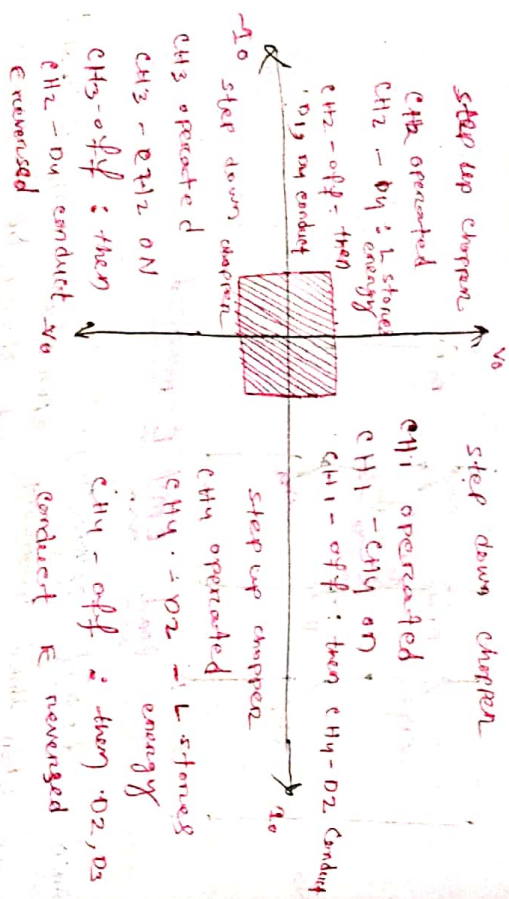 step up chopper
CH2 operated
CH2 - D4 : L stores
energy
CH2 - off : then
D1, D4 conduct
V0
step down chopper
CH1 operated
CH1 - CH4 on
CH1 - off : then CH4 - D2 conduct
-I0
I0
step down chopper
CH3 operated
CH3 - CH2 ON
CH3 - off : then
CH2 - D4 conduct
E reversed
-V0
step up chopper
CH4 operated
CH4 - D2 - L stores
energy
CH4 - off : then D2, D3
conduct E reversed